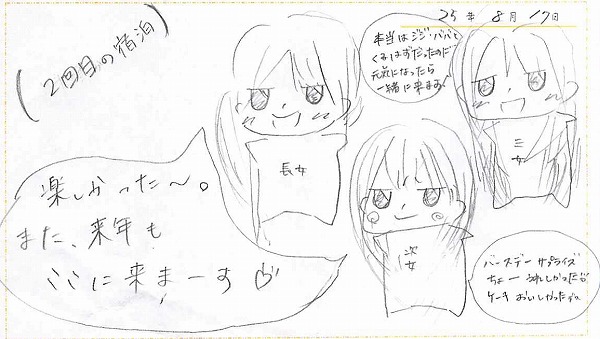 25年 8月 17日
(2回目の宿泊)
本当はジジ・ババと
くるはずだったのに
元気になったら
一緒に来ます。
長女
三女
次女
楽しかった〜。
また、来年も
ここに来まーす
バースデー サプライズ
ちょー うれしかった
ケーキ おいしかった